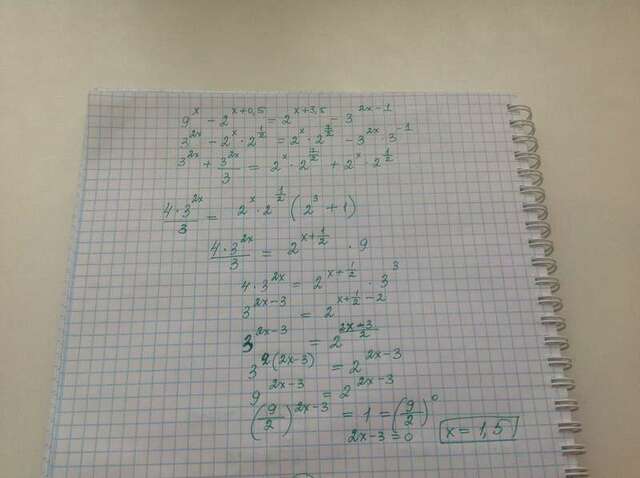 9^x - 2^(x+0,5) = 2^(x+3,5) - 3^(2x-1)
3^(2x) - 2^x · 2^(1/2) = 2^x · 2^(7/2) - 3^(2x) · 3^(-1)
3^(2x) + 3^(2x)/3 = 2^x · 2^(7/2) + 2^x · 2^(1/2)
4·3^(2x)/3 = 2^x · 2^(1/2) (2^3 + 1)
4·3^(2x)/3 = 2^(x+1/2) · 9
4·3^(2x) = 2^(x+1/2) · 3^3
3^(2x-3) = 2^(x+1/2-2)
3^(2x-3) = 2^((2x-3)/2)
3^(2(2x-3)) = 2^(2x-3)
9^(2x-3) = 2^(2x-3)
(9/2)^(2x-3) = 1 = (9/2)^0
2x-3=0 x = 1,5